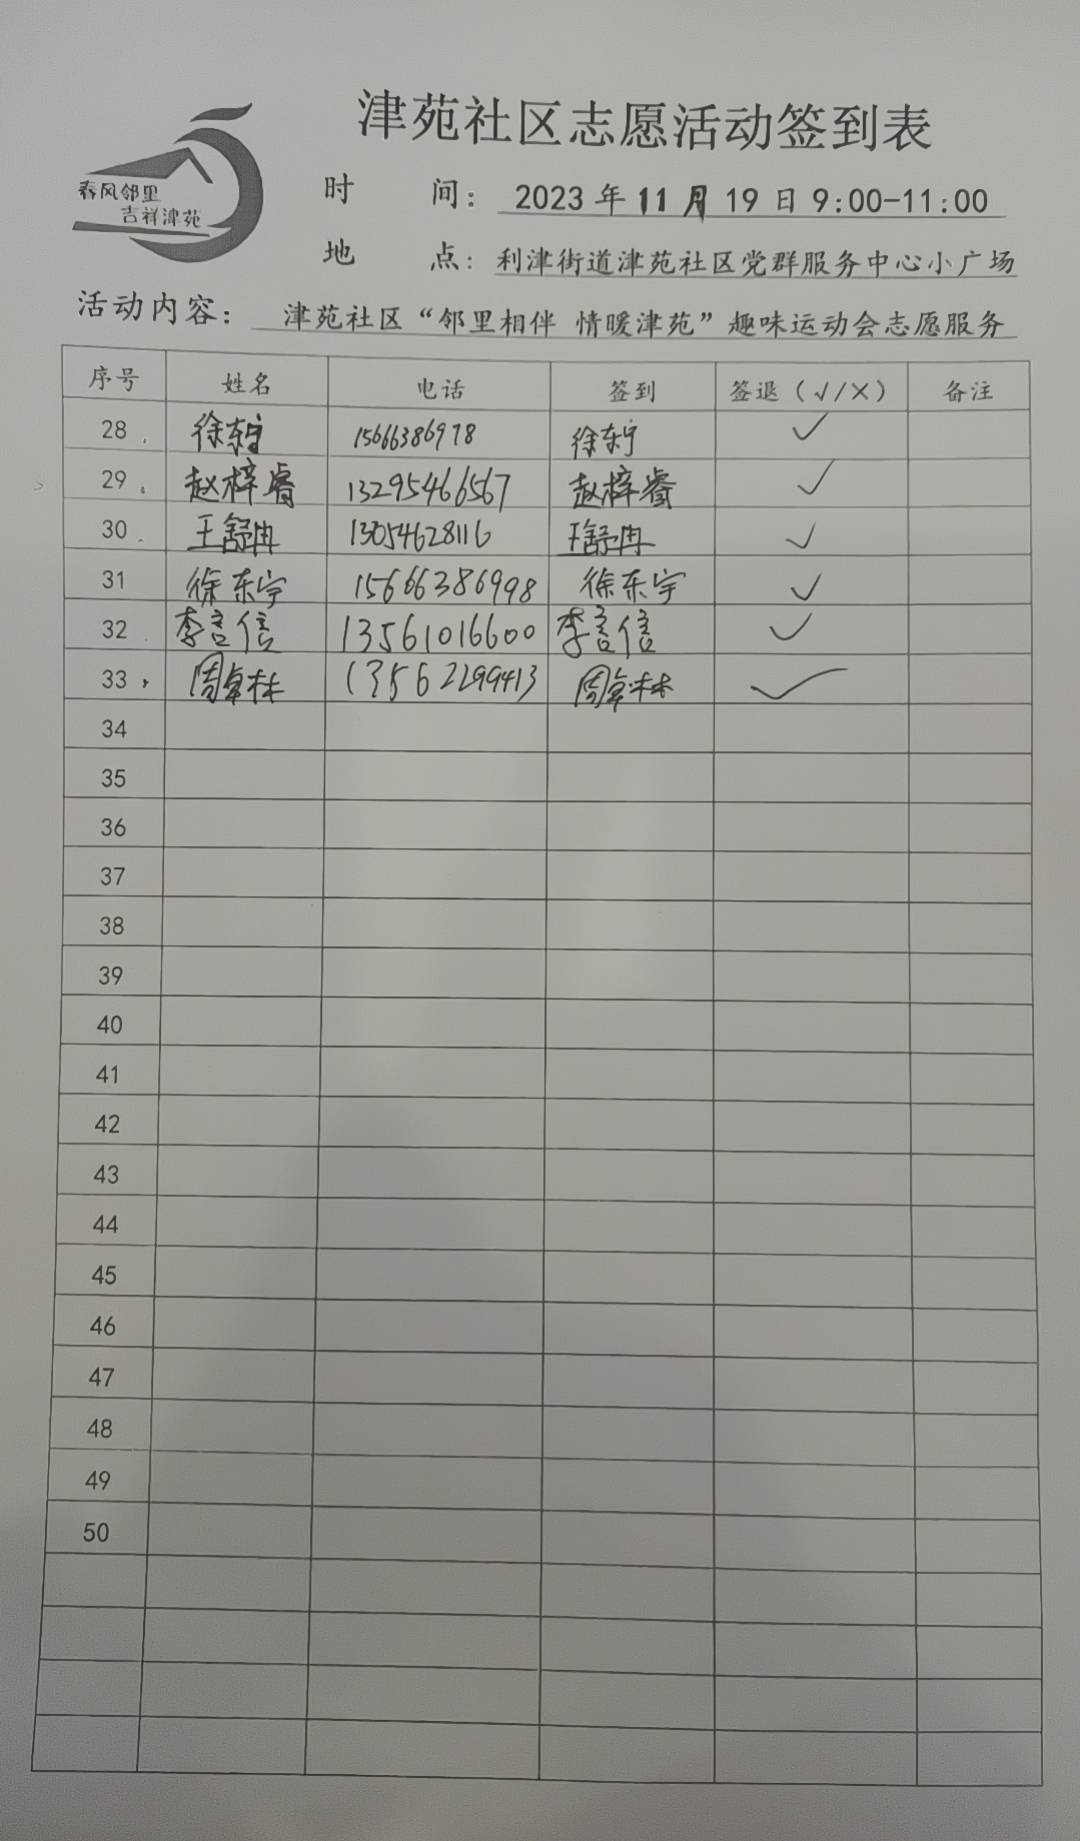 津苑社区志愿活动签到表
春风邻里
吉祥津苑
时 间： 2023年11月19日9:00-11:00
地 点： 利津街道津苑社区党群服务中心小广场
活动内容： 津苑社区“邻里相伴 情暖津苑”趣味运动会志愿服务
序号 姓名 电话 签到 签退（√/×） 备注
28 徐东宁 15666386978 徐东宁 √
29 赵梓睿 13295466567 赵梓睿 √
30 王舒冉 13054628116 王舒冉 √
31 徐东宇 15666386998 徐东宇 √
32 李言信 13561016600 李言信 √
33 周卓林 13562299413 周卓林 √
34
35
36
37
38
39
40
41
42
43
44
45
46
47
48
49
50